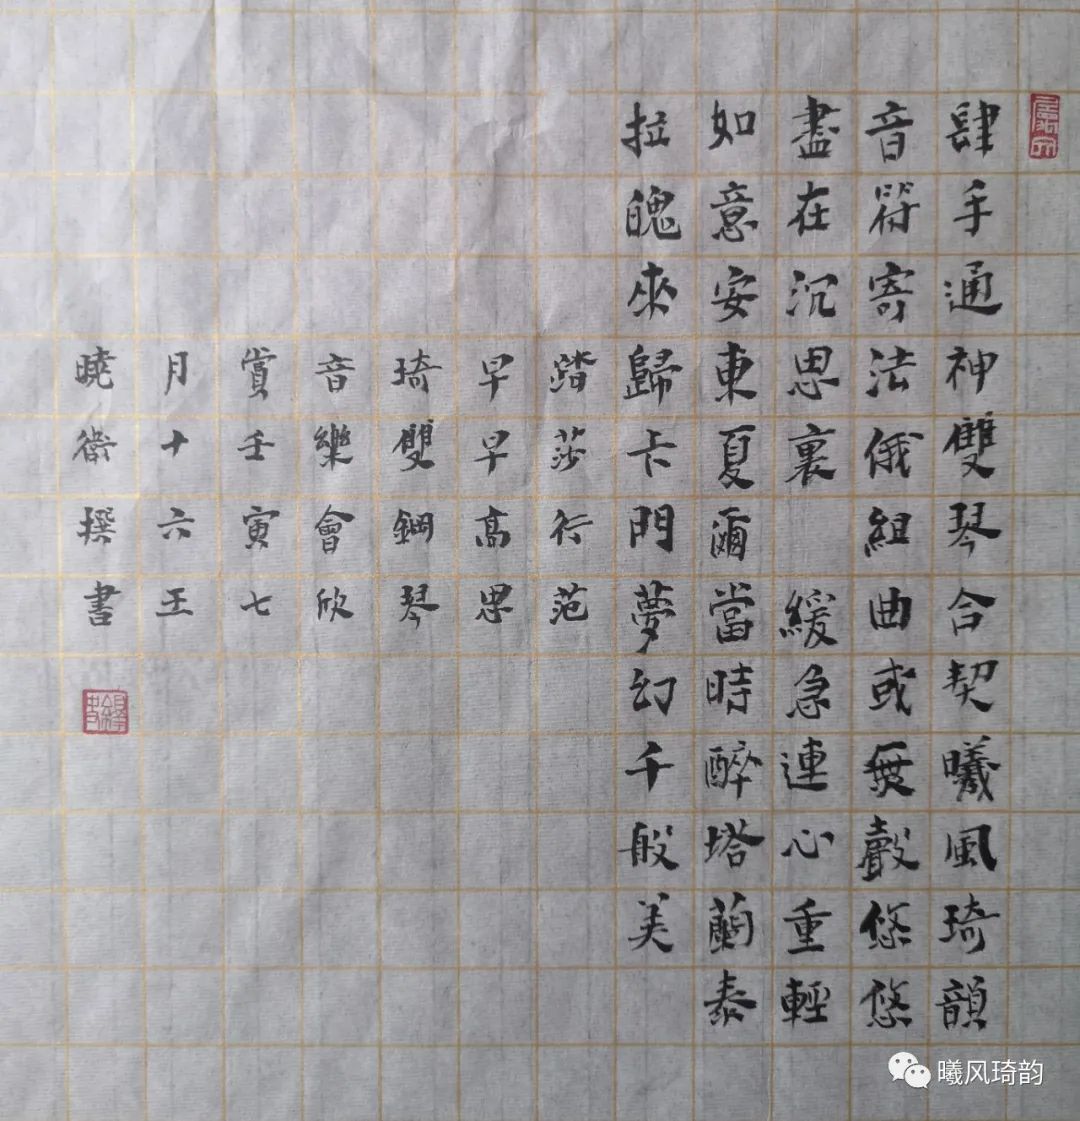 肆手通神雙琴合契曦風琦韻
音符寄法俄組曲或無聲悠悠
盡在沉思裏 緩急連心重輕
如意安東夏爾當時醉塔蘭泰
拉魄來歸卡門夢幻千般美
踏莎行范
早早高思
琦雙鋼琴
音樂會欣
賞壬寅七
月十六王
曉衛撰書
曦风琦韵